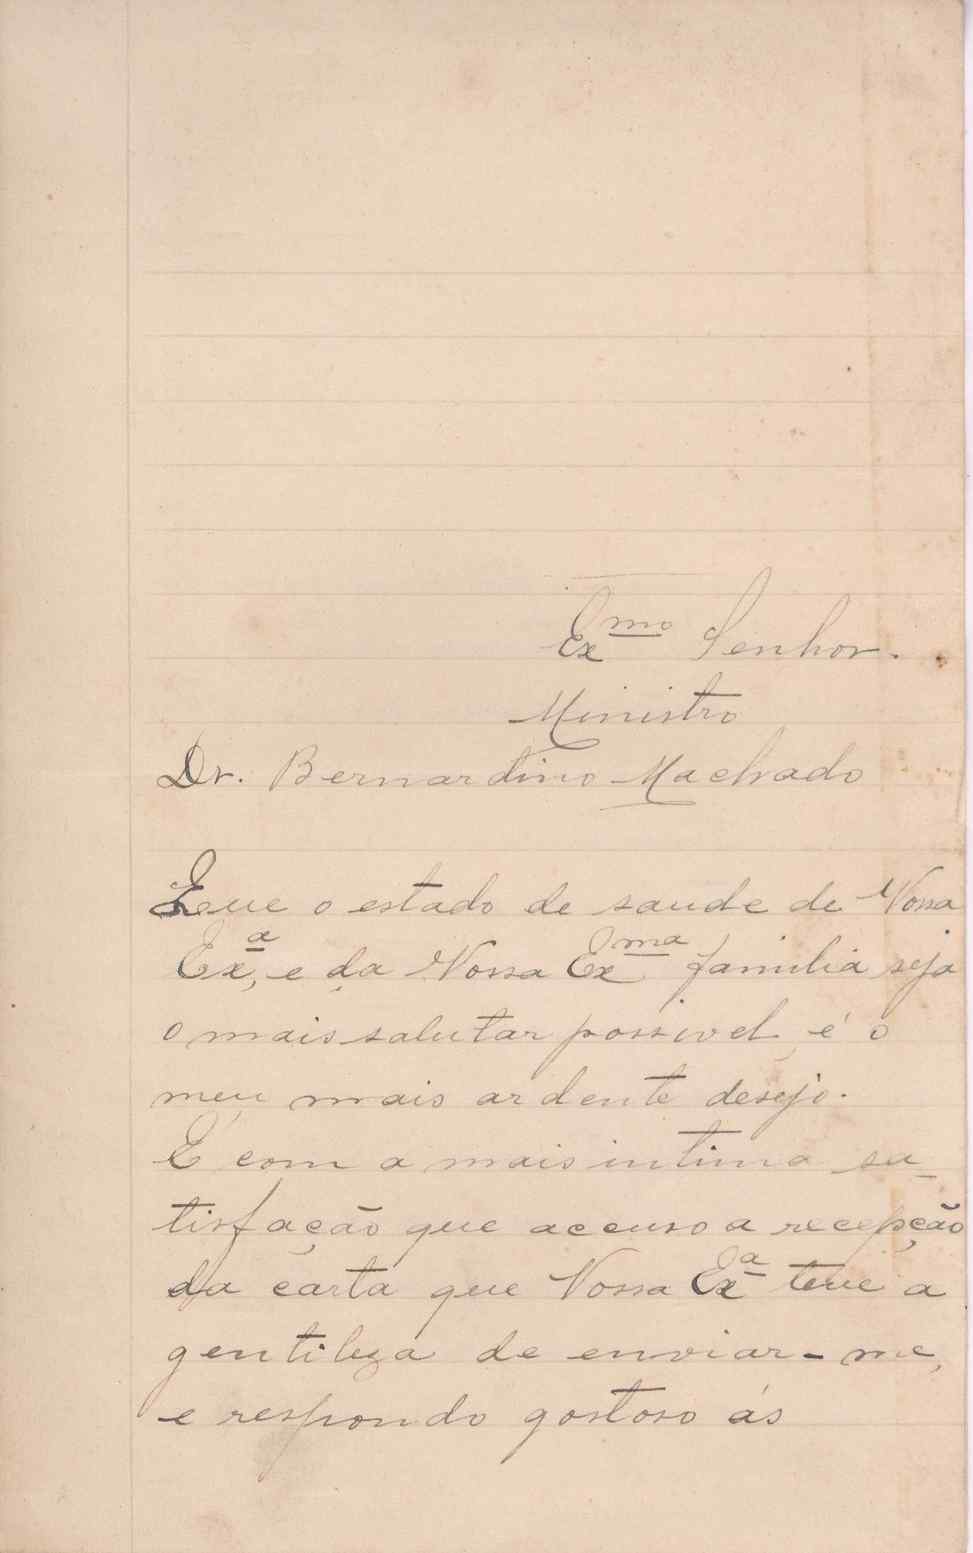 Ex.mo Senhor.
Ministro
Dr. Bernardino Machado
Que o estado de saude de Vossa
Ex.a, e da Vossa Ex.ma familia seja
o mais salutar possivel, é o
meu mais ardente desejo.
É com a mais intima sa-
tisfação que accuso a recepção
da carta que Vossa Ex.a teve a
gentileza de enviar-me,
e respondo gostoso ás